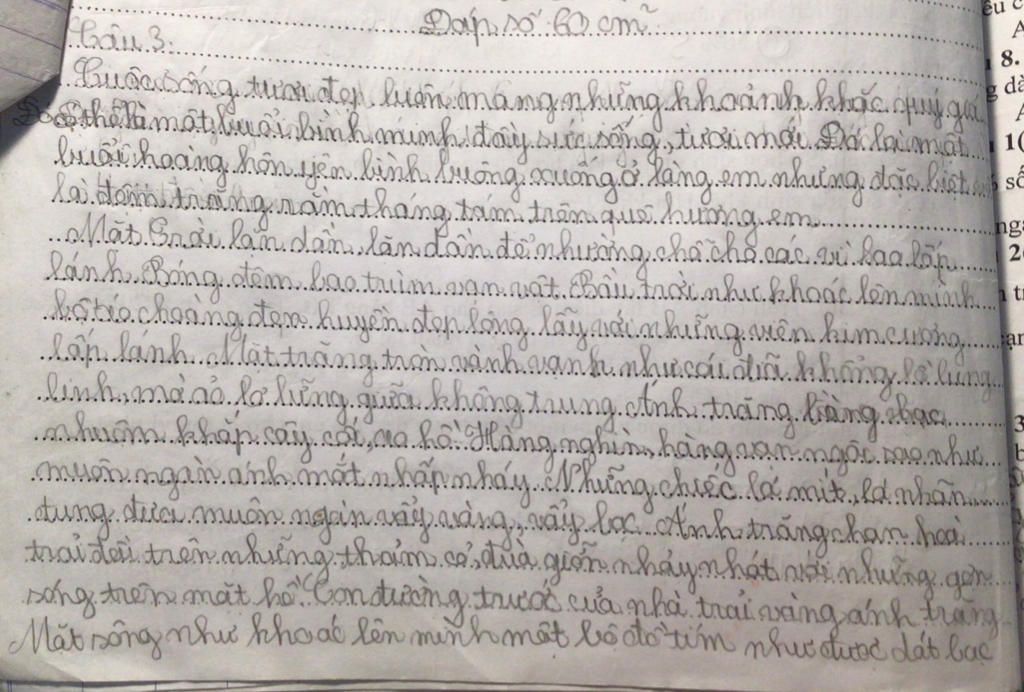 Đáp số 60 cm²
Câu 3:
Cuộc sống tươi đẹp luôn mang những khoảnh khắc quý giá
Có thể là một buổi bình minh đầy sức sống, tươi mới Đó lại một
buổi hoàng hôn yên bình buông xuống ở làng em nhưng đặc biệt
là đêm trăng rằm tháng tám trên quê hương em
Mặt Trời lần dần, lăn dần để nhường chỗ cho các vì sao lấp
lánh. Bóng đêm bao trùm vạn vật. Bầu trời như khoác lên mình
bộ áo choàng đen huyền đẹp lộng lẫy với những viên kim cương
lấp lánh. Mặt trăng tròn vành vạnh như cái đĩa khổng lồ lung
linh, mờ ảo lơ lửng giữa không trung. Ánh trăng vàng bạc
nhuộm khắp cây cối, ao hồ. Hàng nghìn, hàng vạn ngôi sao như
muôn ngàn ánh mắt nhấp nháy. Những chiếc lá mít, lá nhãn
đung đưa muôn ngàn vẩy vàng, vẩy bạc. Ánh trăng chan hoà
trải dài trên những thảm cỏ, đùa giỡn nhảy nhót với những gợn
sóng trên mặt hồ. Con đường trước cửa nhà trải vàng ánh trăng
Mặt sông như khoác lên mình một bộ đồ tím như được dát bạc
ếu c
A
8.
g dà
A
1(
số
ng
2
tr
ạn
3
b